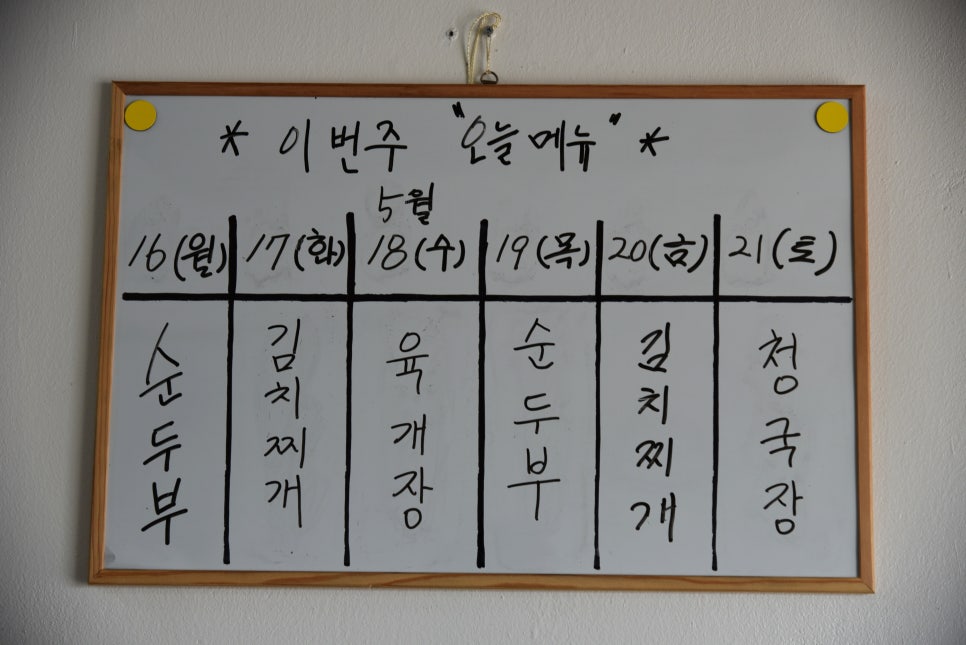 * 이번주 "오늘메뉴" *
5월
16(월) 17(화) 18(수) 19(목) 20(금) 21(토)
순두부
김치찌개
육개장
순두부
김치찌개
청국장